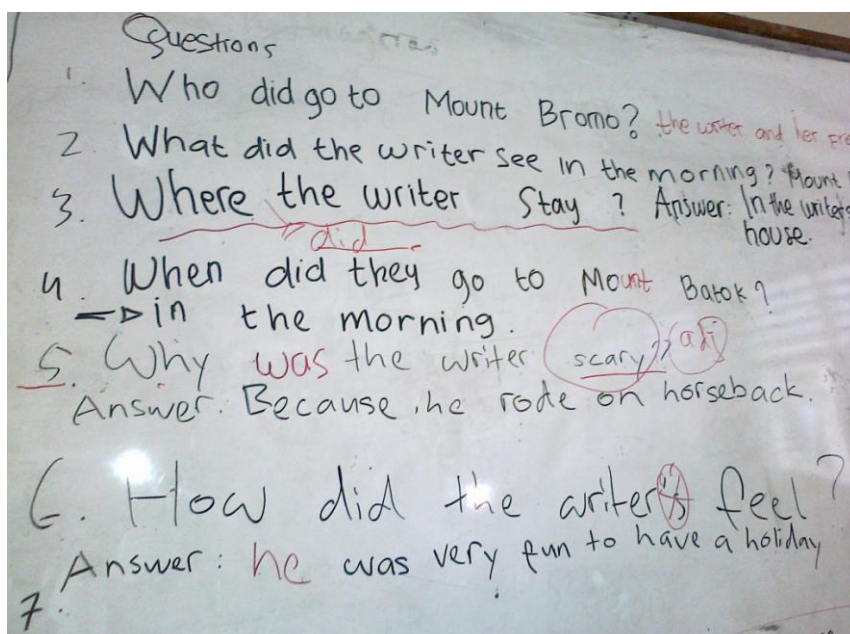 Questions
1. Who did go to Mount Bromo? the writer and her
2. What did the writer see in the morning? Mount
3. Where the writer Stay? Answer: In the writer's
did
house.
4. When did they go to Mount Batok?
in the morning.
5. Why was the writer scary? adj
Answer. Because he rode on horseback.
6. How did the writer's feel?
Answer: he was very fun to have a holiday
7.